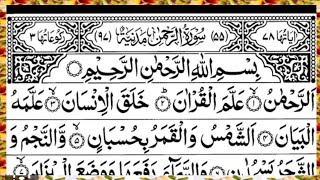 اٰیَاتُهَا ۷۸ (۵۵) سُوْرَةُ الرَّحْمٰنِ مَدَنِیَّةٌ (۹۷) رُكُوْعَاتُهَا ۳
بِسْمِ اللّٰهِ الرَّحْمٰنِ الرَّحِیْمِ
اَلرَّحْمٰنُ ۙ۱ عَلَّمَ الْقُرْاٰنَ ؕ۲ خَلَقَ الْاِنْسَانَ ۙ۳ عَلَّمَهُ
الْبَیَانَ ۴ اَلشَّمْسُ وَ الْقَمَرُ بِحُسْبَانٍ ۪۵ وَّ النَّجْمُ وَ
الشَّجَرُ یَسْجُدٰنِ ۶ وَ السَّمَآءَ رَفَعَهَا وَ وَضَعَ الْمِیْزَانَ